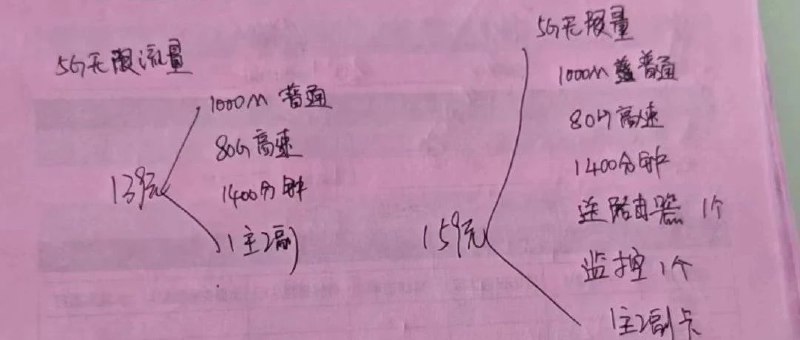 5G无限流量
139元
1000M 普通
80G高速
1400分钟
1主2副
5G无限量
159元
1000M 普通
80G高速
1400分钟
送路由器 1个
监控 1个
1主2副卡